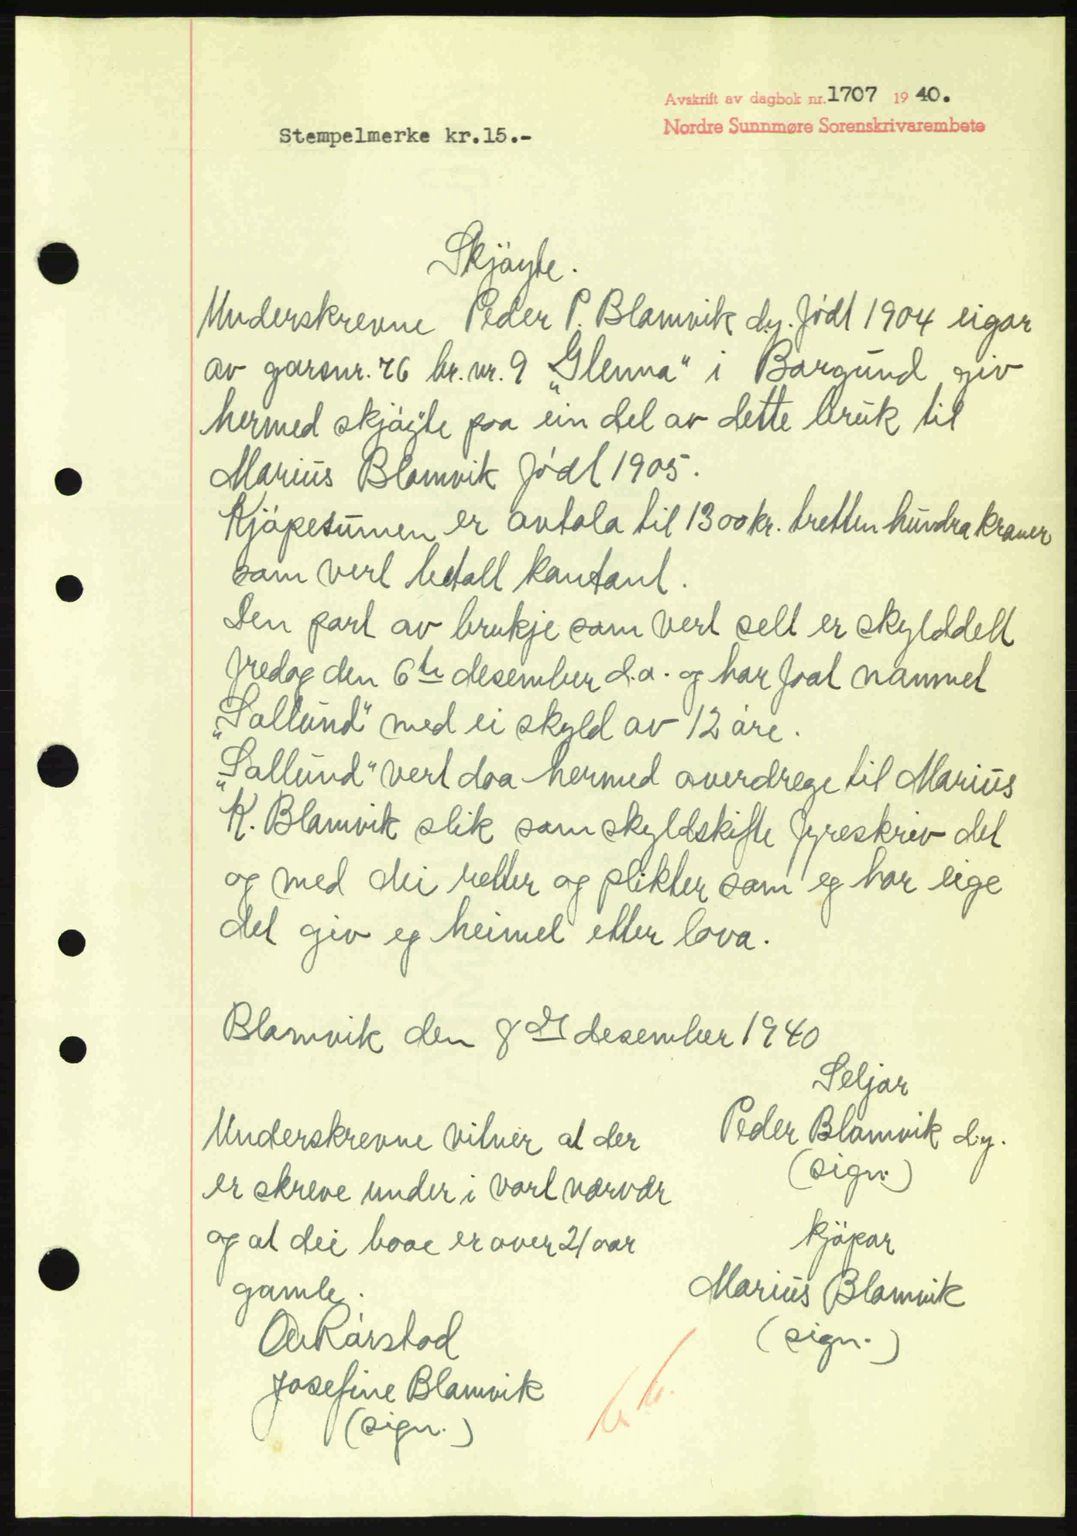 Avskrift av dagbok nr. 1707 1940.
Nordre Sunnmøre Sorenskrivarembete
Stempelmerke kr.15.-
Skjøyte.
Underskrevne Peder P. Blomvik d.y. født 1904 eigar
av garsnr. 76 br. nr. 9 „Glenna" i Borgund giv
hermed skjøyte paa ein del av dette bruk til
Marius Blomvik født 1905.
Kjøpesumen er avtala til 1300 kr. tretten hundra kroner
som vert betalt kontant.
Den part av brukje som vert selt er skylddelt
fredag den 6te desember d.a. og har foat namnet
„Sollund" med ei skyld av 12 øre.
„Sollund" vert daa hermed overdrege til Marius
K. Blomvik slik som skyldskifte fyreskriv det
og med dei retter og plikter som eg har eige
det giv eg heimel etter lova.
Blomvik den 8de desember 1940
Seljar
Peder Blomvik d.y.
(sign.)
kjøpar
Marius Blomvik
(sign.)
Underskrevne vitner at der
er skreve under i vort nærvær
og at dei boae er over 21 aar
gamle.
Rørstad
Josefine Blomvik
(sign.)